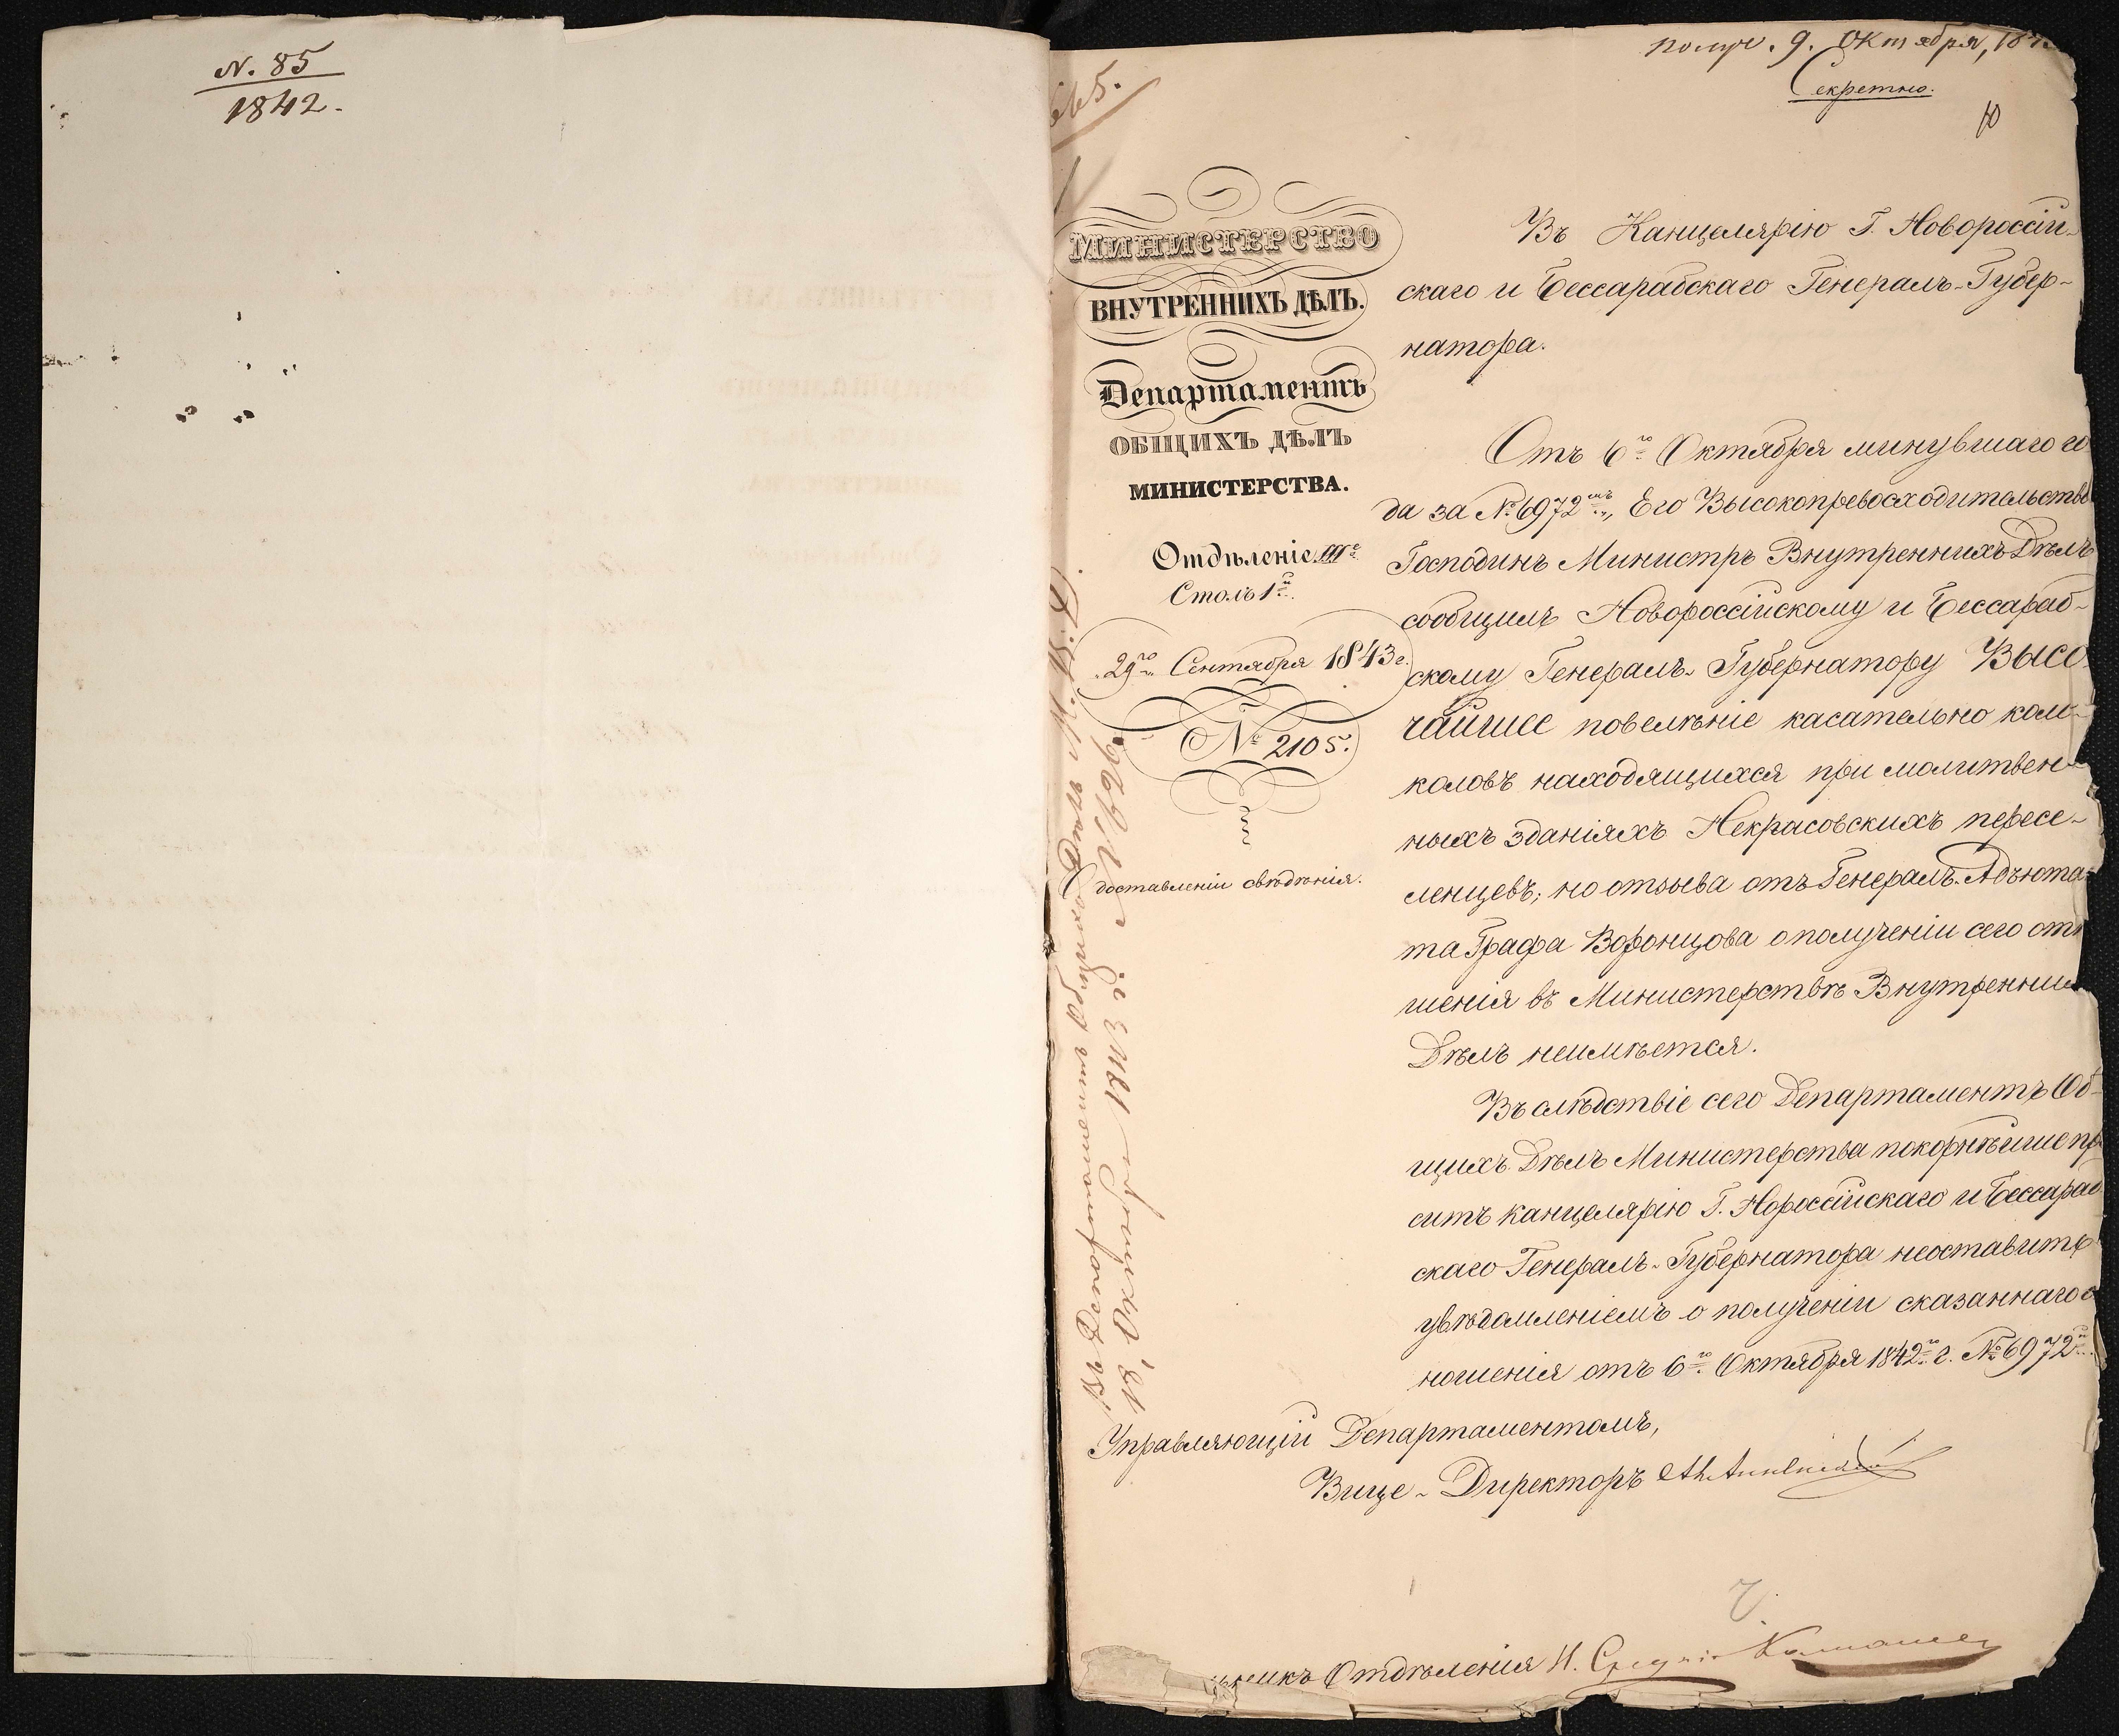 N. 85
1842.
получ. 9. Октября, 18
Секретно.
10
665.
МИНИСТЕРСТВО
ВНУТРЕННИХЪ ДѢЛЪ.
Департаментъ
ОБЩИХЪ ДѢЛЪ
МИНИСТЕРСТВА.
Отдѣленіе III е
Столъ 1й
29го Сентября 1843 г.
№ 2105.
О доставленіи свѣдѣнія.
Въ Канцелярію Г. Новороссій-
скаго и Бессарабскаго Генералъ-Губер-
натора.
Отъ 6го Октября минувшаго го
да за № 6972мъ, Его Высокопревосходительство
Господинъ Министръ Внутреннихъ Дѣлъ
сообщилъ Новороссійскому и Бессараб-
скому Генералъ-Губернатору Высо
чайшее повелѣніе касательно коло-
коловъ находящихся при молитвен-
ныхъ зданіяхъ Некрасовскихъ пересе-
ленцевъ; но отзыва отъ Генералъ-Адъюта
та Графа Воронцова о полученіи сего отн
шенія въ Министерствѣ Внутренни
Дѣлъ неимѣется.
Въ слѣдствіе сего Департаментъ Об-
щихъ Дѣлъ Министерства покорнѣйше пр
ситъ канцелярію Г. Новороссійскаго и Бессараб
скаго Генералъ-Губернатора неоставить
увѣдомленіемъ о полученіи сказаннаго о
ношенія отъ 6го Октября 1842го г. № 6972й
Управляющій Департаментомъ,
Вице-Директоръ
Въ Департаментъ Общихъ Дѣлъ М. В. Д.
18 Октября 1843 г. №
никъ Отдѣленія Н.